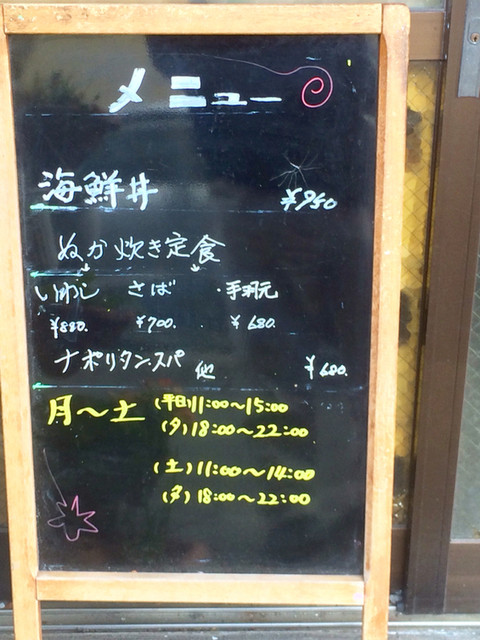 メニュー
海鮮丼 ¥950
ぬか炊き定食
いわし さば ・手羽元
¥880. ¥700. ¥680.
ナポリタン.スパ 他 ¥680.
月〜土 (平日)11:00〜15:00
(夕)18:00〜22:00
(土)11:00〜14:00
(夕)18:00〜22:00